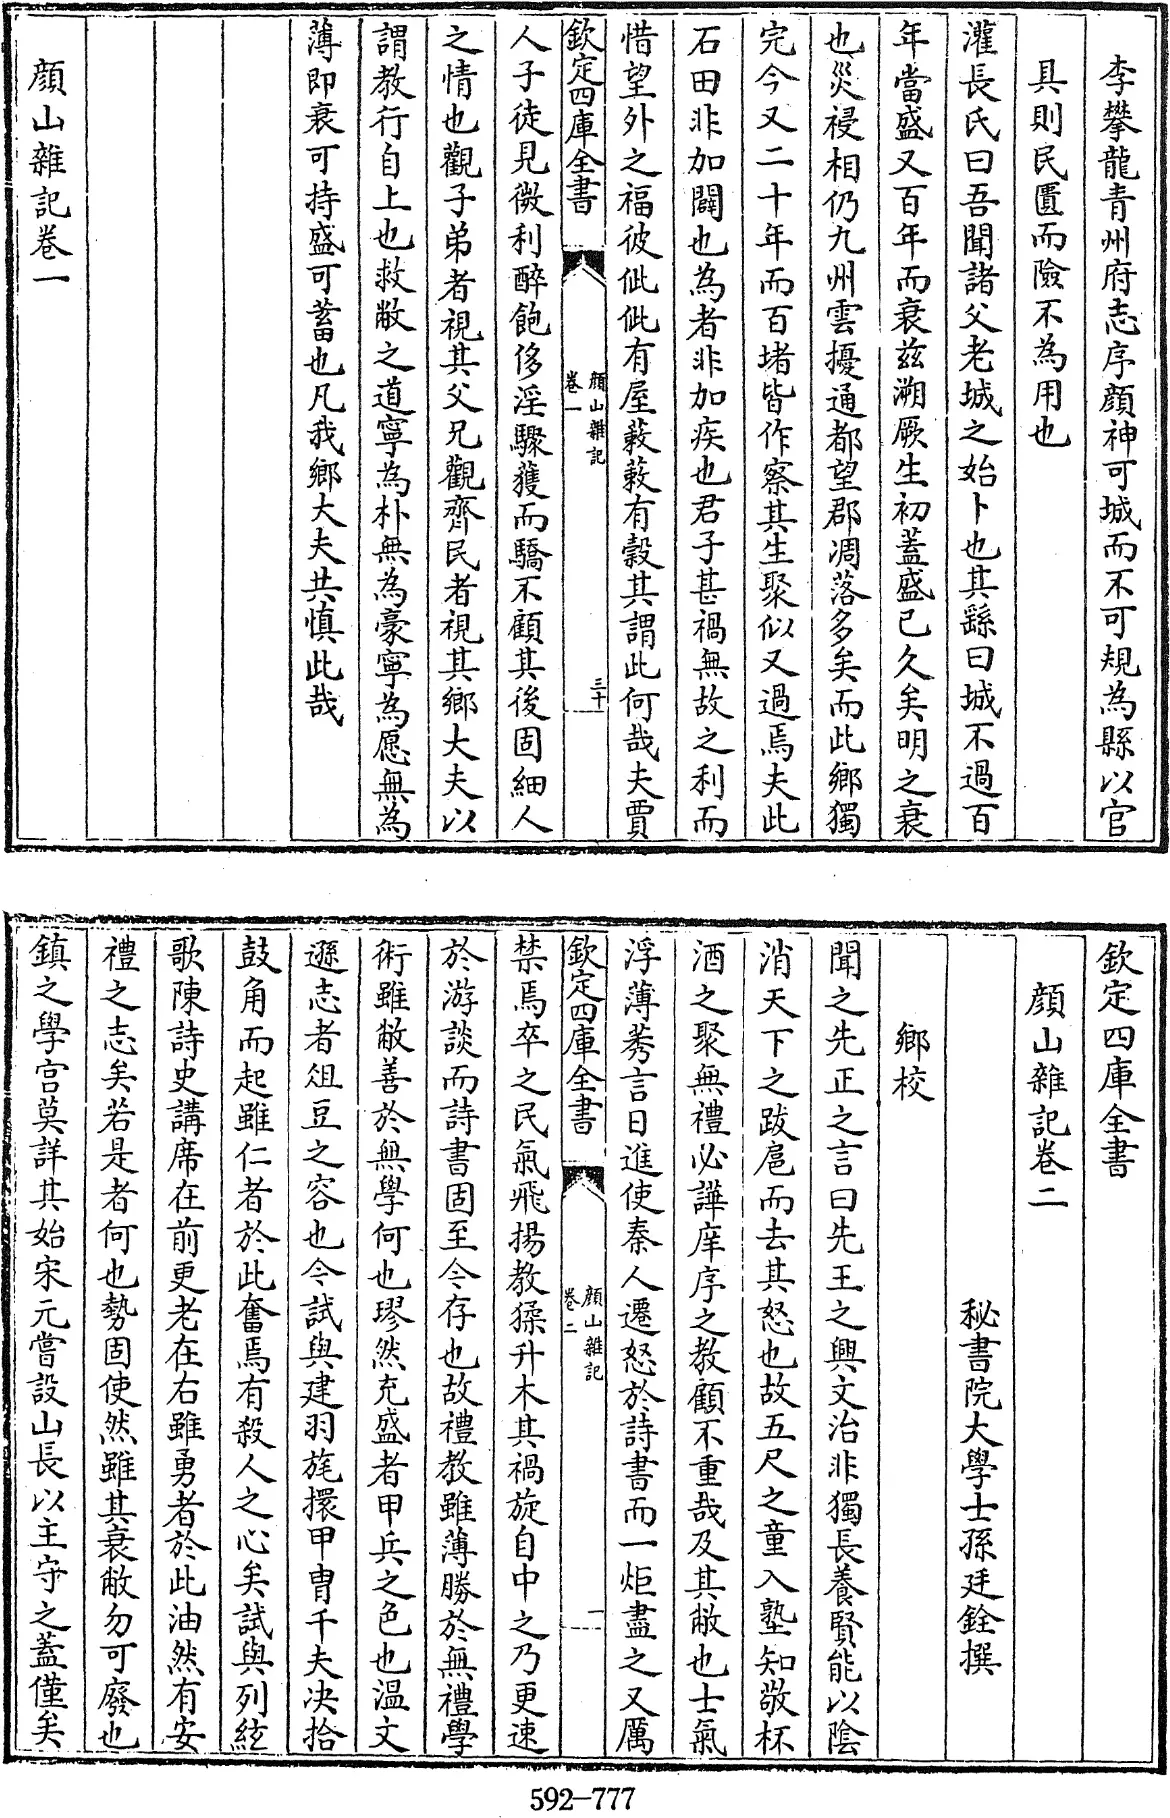 李攀龍青州府志序顔神可城而不可規為縣以官
具則民匱而險不為用也
灌長氏曰吾聞諸父老城之始卜也其繇曰城不過百
年當盛又百年而衰兹溯厥生初蓋盛已久矣明之衰
也災祲相仍九州雲擾通都望郡凋落多矣而此鄉獨
完今又二十年而百堵皆作察其生聚似又過焉夫此
石田非加闢也為者非加疾也君子甚禍無故之利而
惜望外之福彼佌佌有屋蔌蔌有穀其謂此何哉夫賈
欽定四庫全書
顔山雜記
卷一
三十
人子徒見微利醉飽侈淫驟獲而驕不顧其後固細人
之情也觀子弟者視其父兄觀齊民者視其鄉大夫以
謂教行自上也救敝之道寧為朴無為豪寧為愿無為
薄即衰可持盛可蓄也凡我鄉大夫共慎此哉
顔山雜記卷一
欽定四庫全書
顔山雜記卷二
秘書院大學士孫廷銓撰
鄉校
聞之先正之言曰先王之興文治非獨長養賢能以陰
消天下之跋扈而去其怒也故五尺之童入塾知敬杯
酒之聚無禮必譁庠序之教顧不重哉及其敝也士氣
浮薄莠言日進使秦人遷怒於詩書而一炬盡之又厲
欽定四庫全書
顔山雜記
卷二
一
禁焉卒之民氣飛揚教猱升木其禍旋自中之乃更速
於游談而詩書固至今存也故禮教雖薄勝於無禮學
術雖敝善於無學何也璆然充盛者甲兵之色也溫文
遜志者俎豆之容也今試與建羽旄擐甲胄千夫決拾
鼓角而起雖仁者於此奮焉有殺人之心矣試與列絃
歌陳詩史講席在前更老在右雖勇者於此油然有安
禮之志矣若是者何也勢固使然雖其衰敝勿可廢也
鎮之學宫莫詳其始宋元嘗設山長以主守之蓋僅矣
592—777